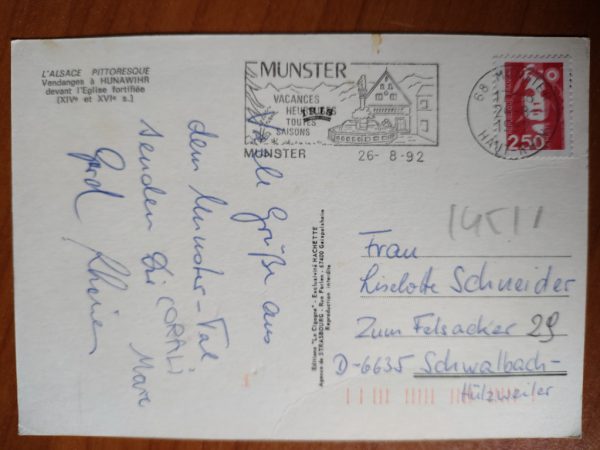 L'ALSACE PITTORESQUE
Vendanges à HUNAWIHR
devant l'Eglise fortifiée
(XIVe et XVIe s.)
MUNSTER
VACANCES
HEUREUSES
TOUTES
SAISONS
MUNSTER
26- 8-92
68 MUNSTER
HAUT-RHIN
2,50
Viele Grüße aus
dem Munster-Tal
senden Dir
Gerd
Editions "La Cigogne" - Exclusivité HACHETTE
Agence de STRASBOURG - Rue Forlen - 67400 Geispolsheim
Reproduction interdite
1451
Frau
Liselotte Schneider
Zum Felsacker 29
D-6635 Schwalbach-
Hülzweiler